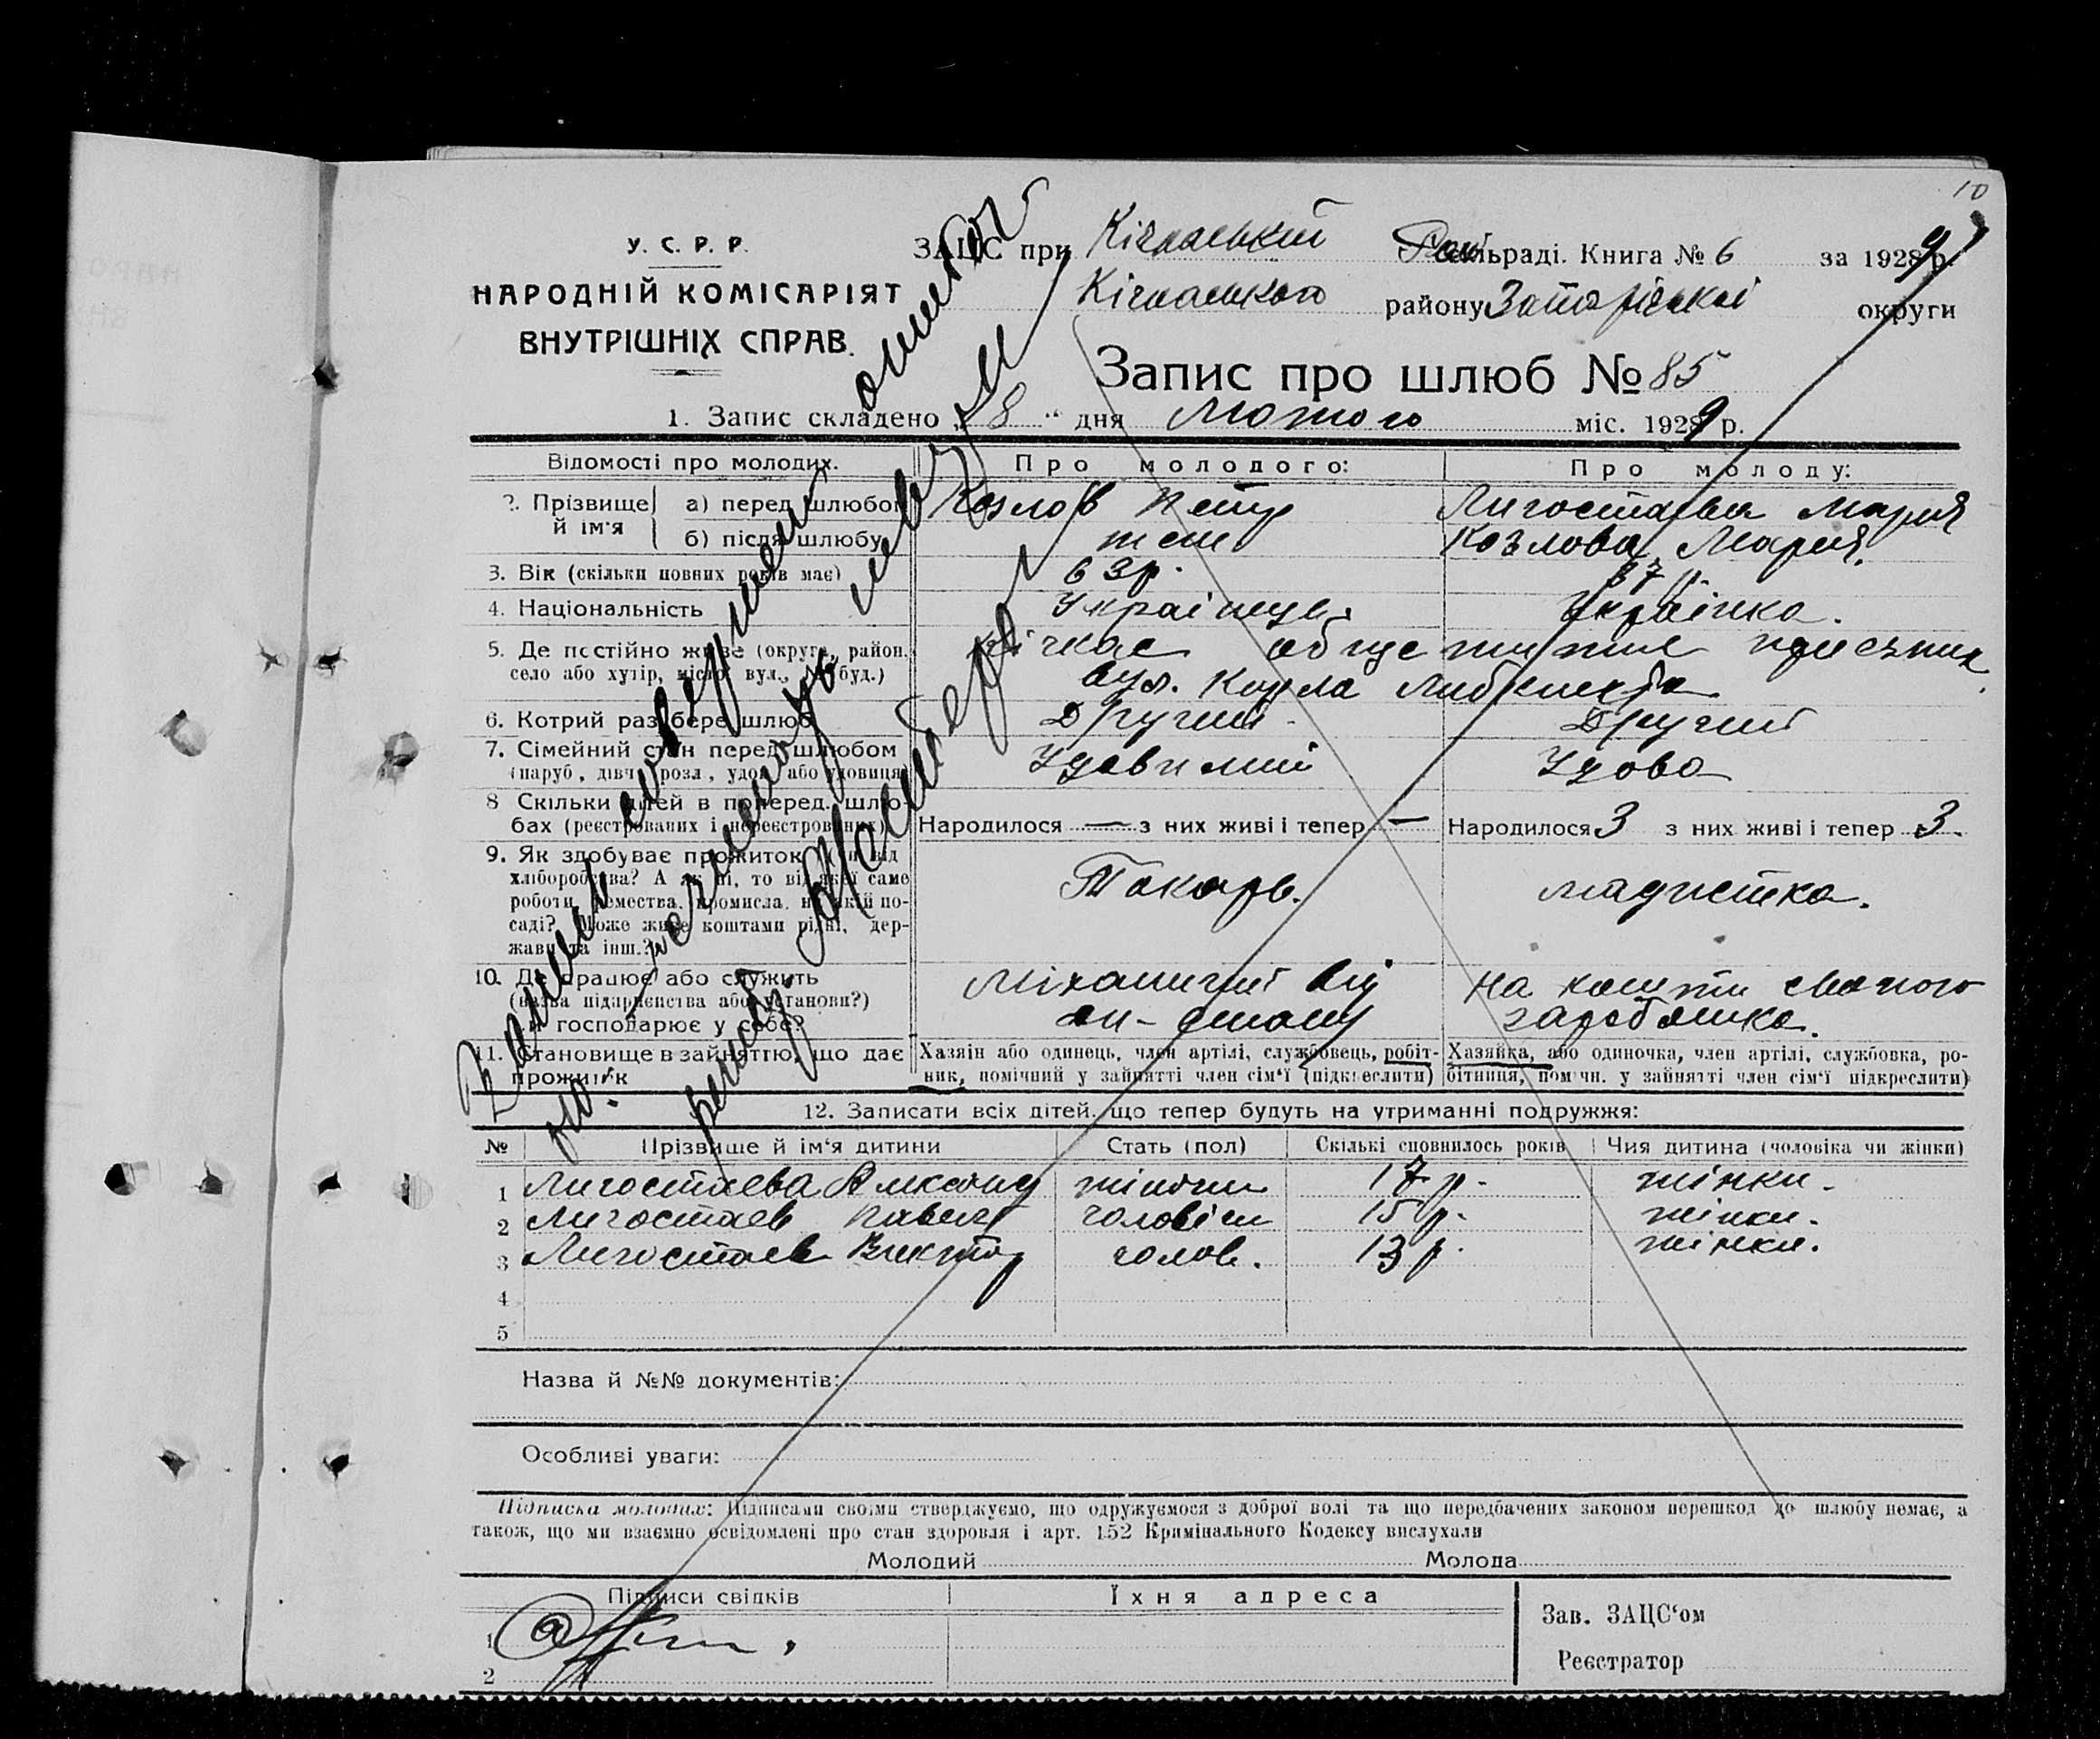 10
У. С. Р. Р.
НАРОДНІЙ КОМІСАРІЯТ
ВНУТРІШНІХ СПРАВ.
ЗАЦС при Кічкаський Рай сільраді. Книга № 6 за 1929 р.
Кічкаського району Запорізької округи
Запис про шлюб № 85
1. Запис складено „8“ дня Лютого міс. 1929 р.
Відомості про молодих. Про молодого: Про молоду:
2. Прізвище й ім'я а) перед шлюбом Козлов Петр Лигостаева Мария
б) після шлюбу теж Козлова Мария.
3. Вік (скільки повних років має) 63 р. 37 р.
4. Національність Українець Українка.
5. Де постійно живе (округа, район, Кічкас общежитие
село або хутір, місто, вул., № буд.) вул. Карла Либкнехта
6. Котрий раз бере шлюб Другий Другий
7. Сімейний стан перед шлюбом Удовилий Удова
(паруб., дівч., розл., удов. або удовиця)
8 Скільки дітей в поперед. шлю-
бах (реєстрованих і нереєстрованих) Народилося — з них живі і тепер — Народилося 3 з них живі і тепер 3.
9. Як здобуває прожиток (чи від
хліборобства? А як ні, то від якої саме
роботи, ремества, промисла, на якій по- Токарь.
саді? Може живе коштами рідні, дер-
жави та інш.?)
10. Де працює або служить Міханичний від На кошти свойого
(назва підприємства або установи?)
й господарює у себе? заработка.
11. Становище в зайняттю, що дає Хазяїн або одинець, член артілі, службовець, робіт- Хазяйка, або одиночка, член артілі, службовка, ро-
прожиток ник, помічний у зайнятті член сім'ї (підкреслити) бітниця, помічн. у зайнятті член сім'ї підкреслити)
12. Записати всіх дітей, що тепер будуть на утриманні подружжя:
№ Прізвище й ім'я дитини Стать (пол) Скількі сповнилось років Чия дитина (чоловіка чи жінки)
1 Лигостаева жіноч 17 р. жінки.
2 Лигостаев Павел чоловіч 15 р. жінки.
3 Лигостаев Виктор чолов. 13 р. жінки.
4
5
Назва й №№ документів:
Особливі уваги:
Підписка молодих: Підписами своїми стверджуємо, що одружуємося з доброї волі та що передбачених законом перешкод до шлюбу немає, а
також, що ми взаємно освідомлені про стан здоровля і арт. 152 Кримінального Кодексу вислухали
Молодий Молода
Підписи свідків Їхня адреса
Зав. ЗАЦС'ом
1
Реєстратор
2